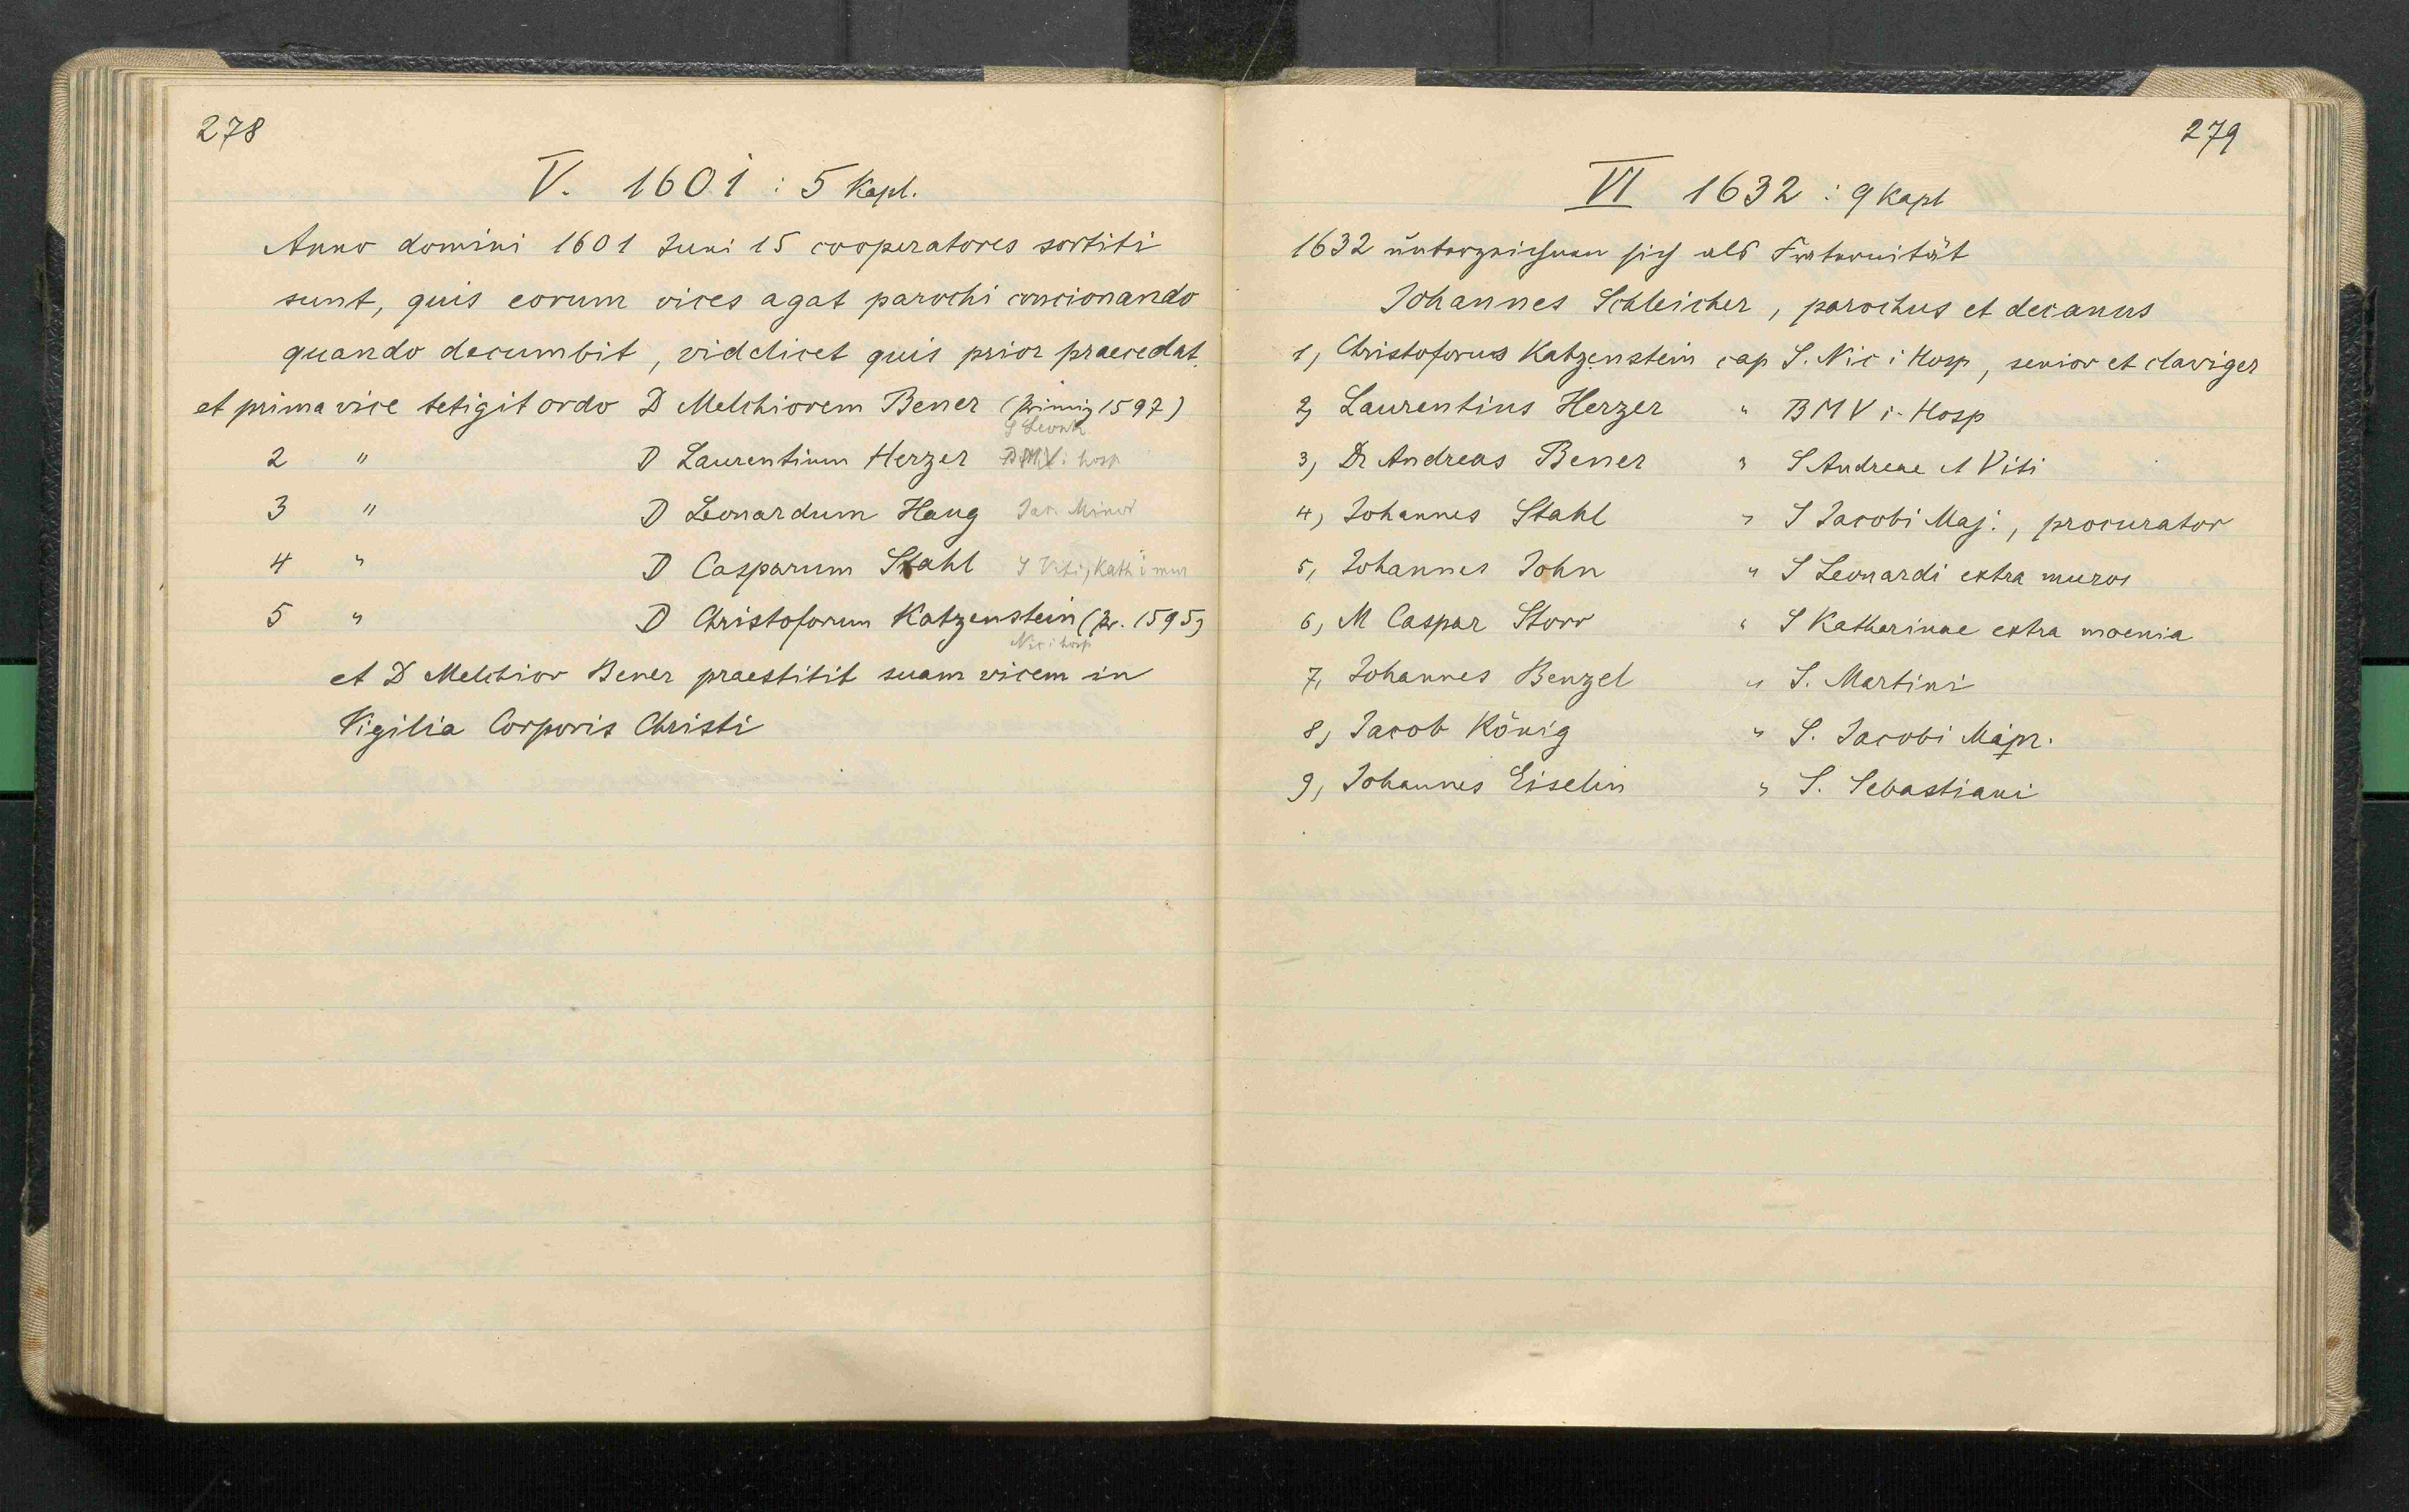 278
V. 1601 : 5 Kapl.
Anno domini 1601 Juni 15 cooperatores sortiti
sunt, quis eorum vices agat parochi concionando
quando decumbit, videlicet quis prior praecedat.
et prima vice tetigit ordo D Melchiorem Bener (Primiz 1597)
S Leonh
2 " D Laurentium Herzer BMV i hosp
3 " D Leonardum Haug Jac. Minor
4 " D Casparum Stahl S Viti, Kath i mur
5 " D Christoforum Katzenstein (Pr. 1595)
Nic i hosp
et D Melchior Bener praestitit suam vicem in
Vigilia Corporis Christi
279
VI 1632 : 9 Kapl
1632 unterzeichnen sich als Fraternität
Johannes Schleicher, parochus et decanus
1, Christoforus Katzenstein cap S. Nic i Hosp, senior et claviger
2, Laurentius Herzer " BMV i. Hosp
3, Dr Andreas Bener " S Andreae et Viti
4, Johannes Stahl " S Jacobi Maj., procurator
5, Johannes John " S Leonardi extra muros
6, M Caspar Storr " S Katharinae extra moenia
7, Johannes Benzel " S. Martini
8, Jacob König " S. Jacobi
9, Johannes Eiselin " S. Sebastiani